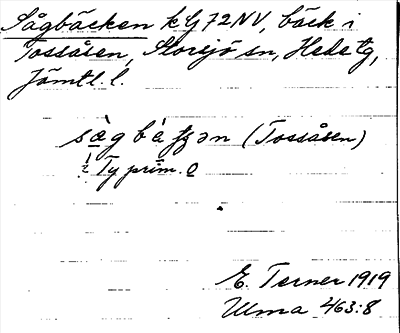 Sågbäcken k G 72 NV, bäck i
Tossåsen, Storsjö sn, Hede tg,
Jämtl. l.
(Tossåsen)
Ty prim.
E. Terner 1919
Ulma 463:8